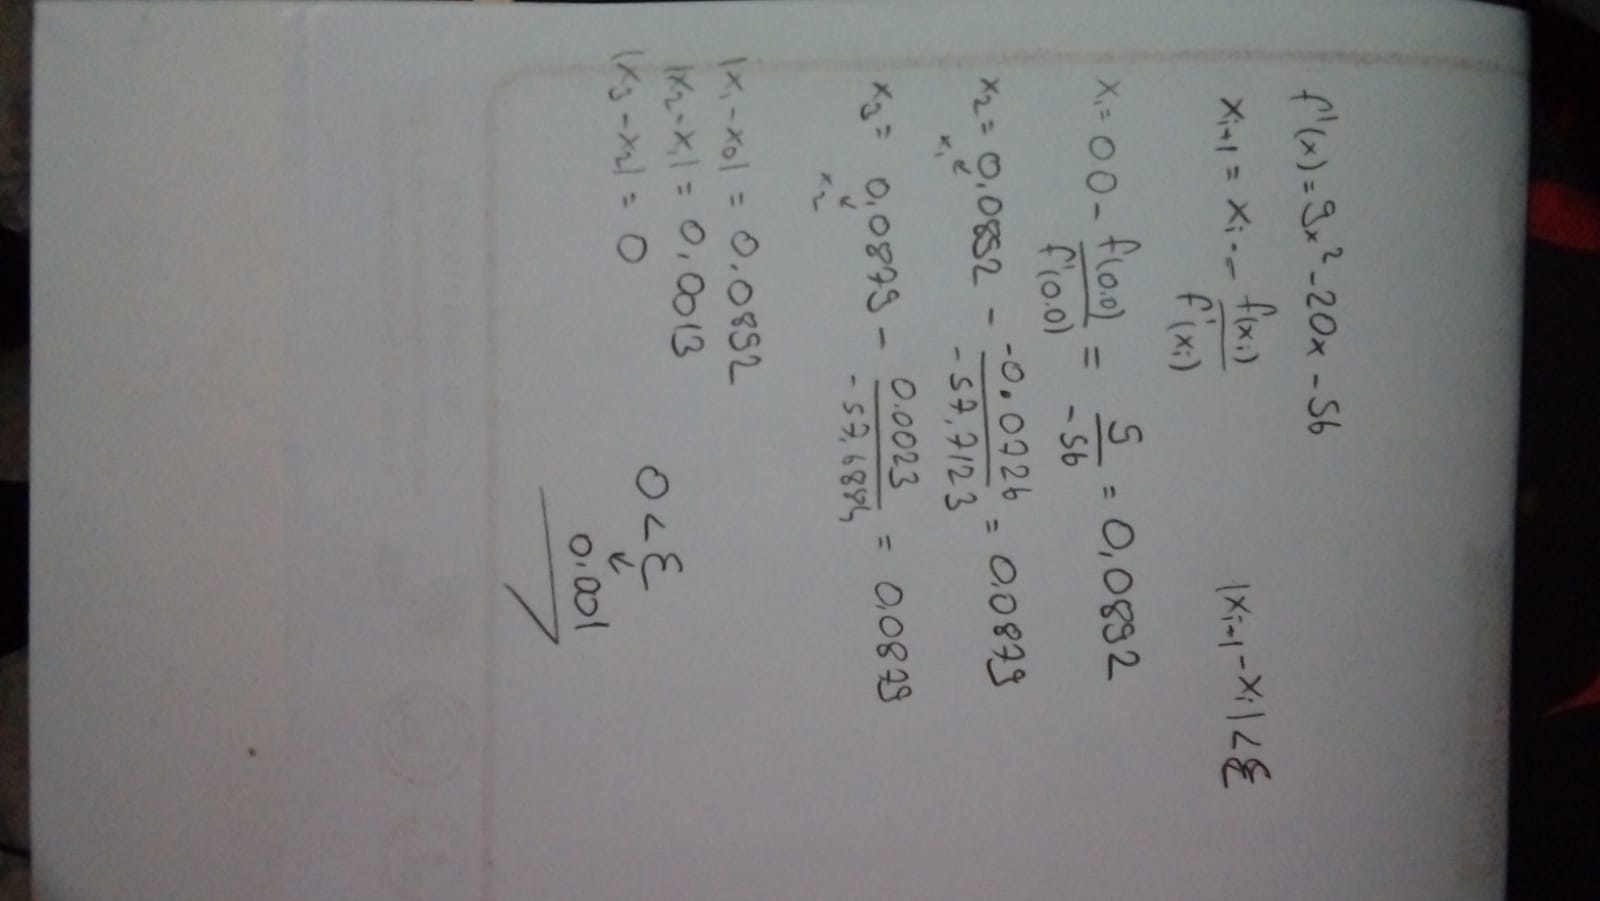 f'(x) = 9x² - 20x - 56
xi+1 = xi - f(xi) / f'(xi)    |xi+1 - xi| < ε
x1 = 0.0 - f(0.0) / f'(0.0) = 5 / -56 = 0,0892
x2 = 0.0892 - -0.0726 / -57,7123 = 0.0879
x1
x3 = 0,0879 - 0.0023 / -57,6884 = 0,0879
x2
|x1 - x0| = 0.0892
|x2 - x1| = 0,0013
|x3 - x2| = 0    0 < ε
0.001